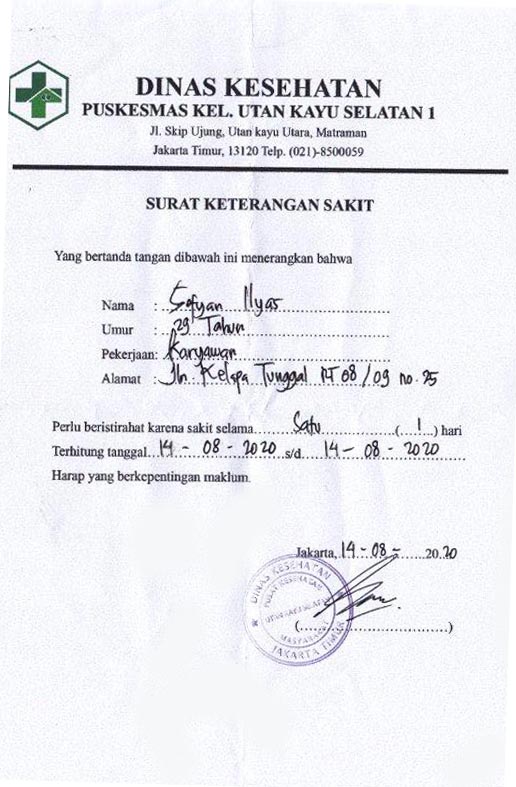 DINAS KESEHATAN
PUSKESMAS KEL. UTAN KAYU SELATAN 1
Jl. Skip Ujung, Utan kayu Utara, Matraman
Jakarta Timur, 13120 Telp. (021)-8500059
SURAT KETERANGAN SAKIT
Yang bertanda tangan dibawah ini menerangkan bahwa
Nama : Sofyan Ilyas
Umur : 29 Tahun
Pekerjaan: Karyawan
Alamat : Jln. Kelapa Tunggal RT 08/09 no. 25
Perlu beristirahat karena sakit selama Satu ( 1 ) hari
Terhitung tanggal 14 - 08 - 2020 s/d 14 - 08 - 2020
Harap yang berkepentingan maklum.
Jakarta, 14 - 08 - 2020
DINAS KESEHATAN
PUSAT KESEHATAN
MASYARAKAT
JAKARTA TIMUR
(..............................)